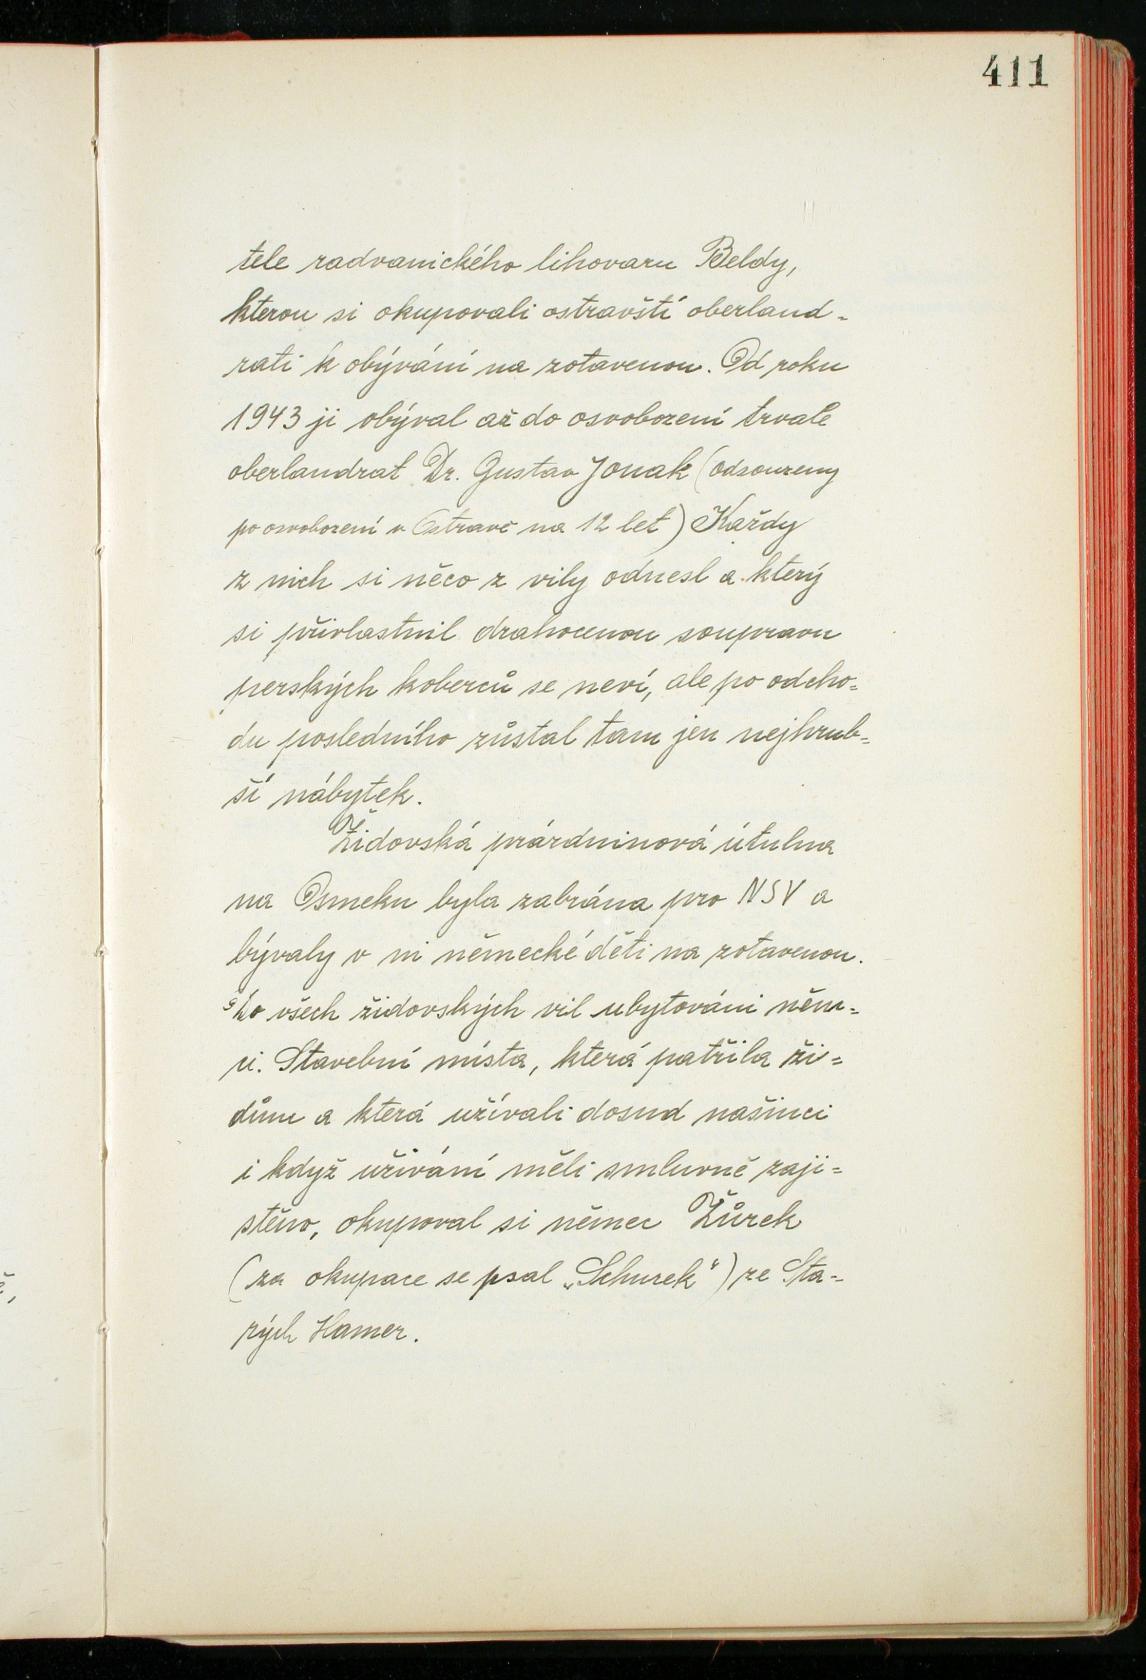 411
tele radvanického lihovaru Beldy,
kterou si okupovali ostravští oberland-
rati k obývání na zotavenou. Od roku
1943 ji obýval až do osvobození trvale
oberlandrat Dr. Gustav Jonak (odsouzeny
po osvobození v Ostravě na 12 let) Každy
z nich si něco z vily odnesl a který
si přivlastnil drahocenou soupravu
perských koberců se neví, ale po odcho-
du posledního zůstal tam jen nejhrub-
ší nábytek.
Židovská prázdninová útulna
na Osmeku byla zabrána pro NSV a
bývaly v ni německé děti na zotavenou.
Do všech židovských vil ubytováni něm-
ci. Stavební místa, která patřila ži-
dům a která užívali dosud našinci
i když užívání měli smluvně zaji-
stěno, okupoval si němec Žůrek
(za okupace se psal „Schurek“) ze Sta-
rých Hamer.